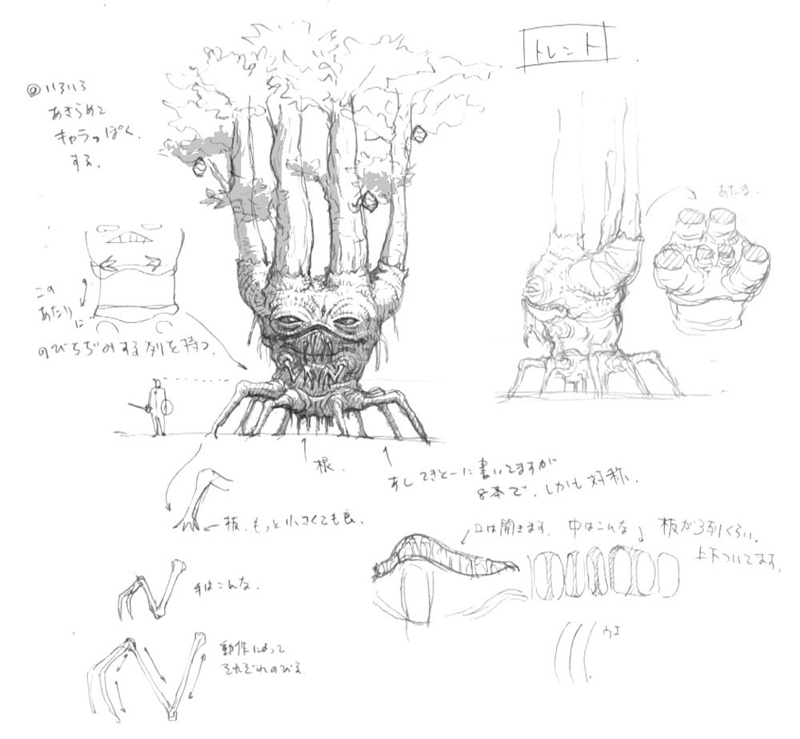 トレント
@いろいろ
あきらめて
キャラっぽく
する。
あたま.
この
あたりに
のびちぢみする列を持つ.
根.
あしてきとーに書いてますが
8本で、しかも対称.
根、もっと小さくても良.
口は開きます. 中はこんな 板が3列くらい.
上下ついてます.
手はこんな.
ウエ
動作によって
それぞれのびる